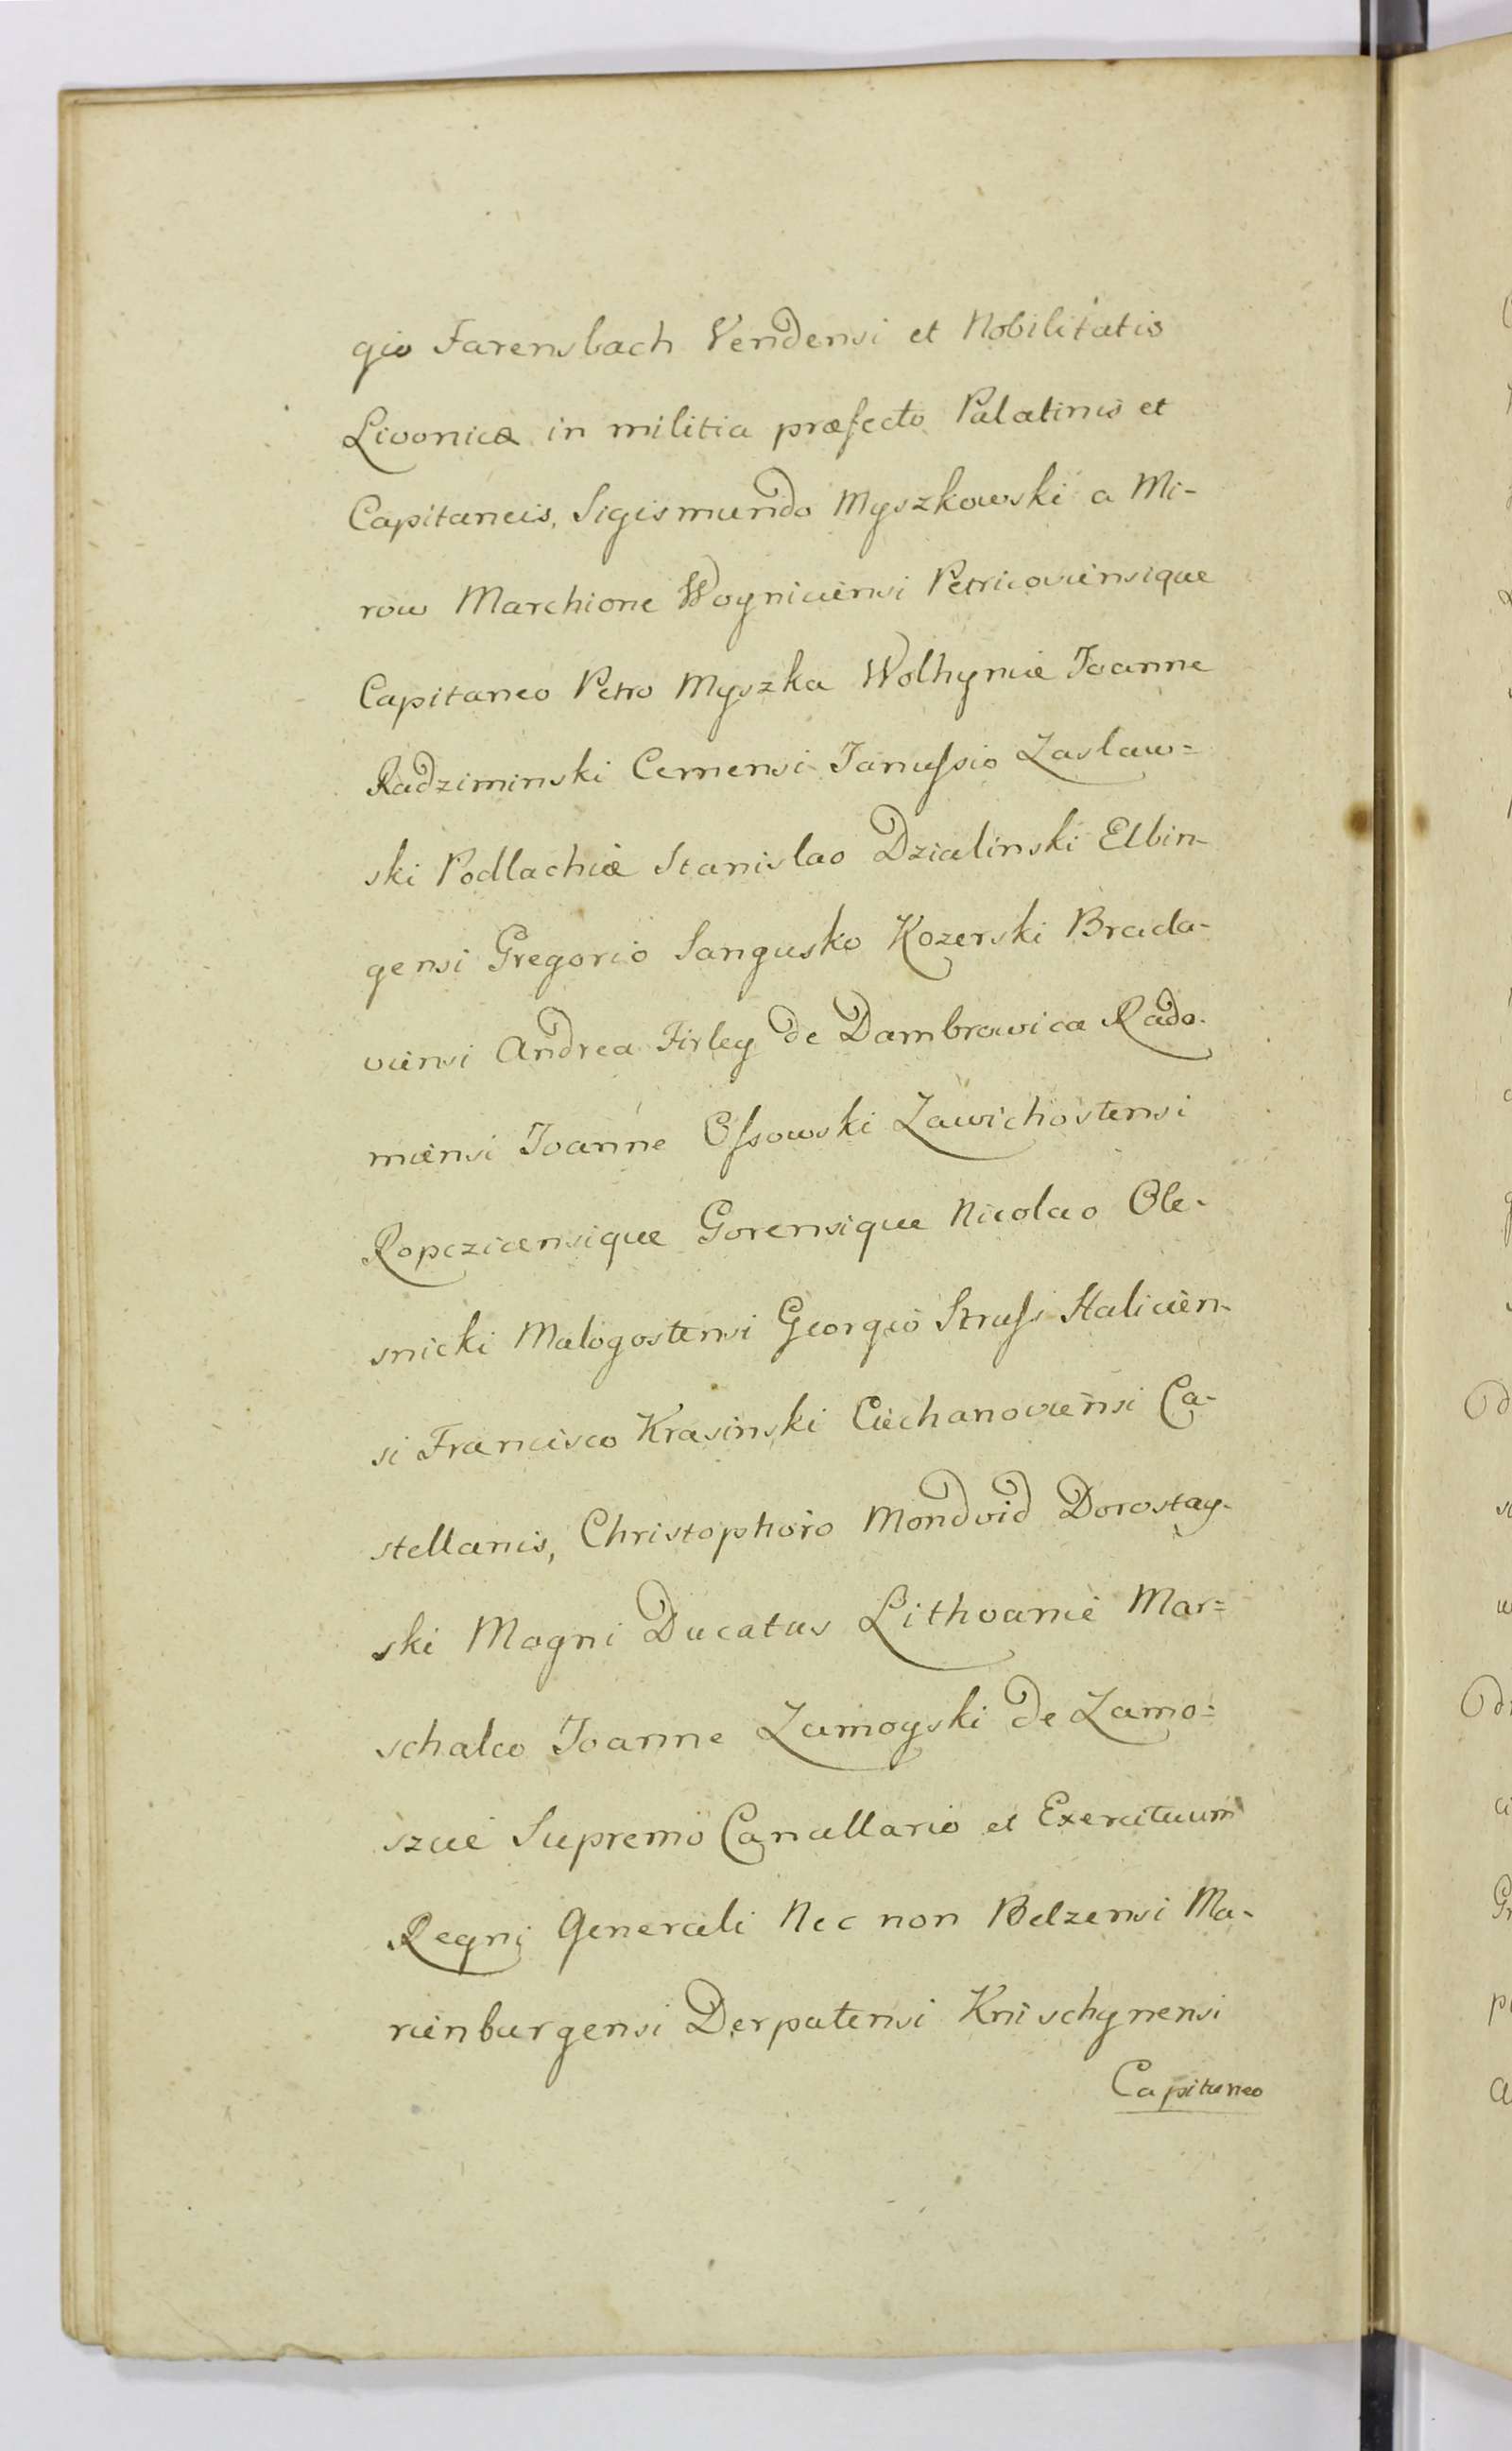 gio Farensbach Vendensi et Nobilitatis
Livonicæ in militia præfecto Palatinis et
Capitaneis, Sigismundo Myszkowski a Mi-
row Marchione Woyniciensi Petricoviensique
Capitaneo Petro Myszka Wolhyniæ Joanne
Radziminski Cernensi Janussio Zaslaw=
ski Podlachiæ Stanislao Dzialinski Elbin-
gensi Gregorio Sangusko Kozerski Brada-
viensi Andrea Firley de Dambrowica Rado-
miensi Joanne Ossowski Zawichostensi
Ropczicensique Gorensique Nicolao Ole-
snicki Malogostensi Georgio Struss Halicien-
si Francisco Krasinski Ciechanoviensi Ca-
stellanis, Christophoro Mondvid Dorostay-
ski Magni Ducatus Lithvanie Mar=
schalco Joanne Zamoyski de Zamo=
szcie Supremo Cancellario et Exercituum
Regni Generali Nec non Belzensi Ma-
rienburgensi Derpatensi Knischynensi
Capitaneo